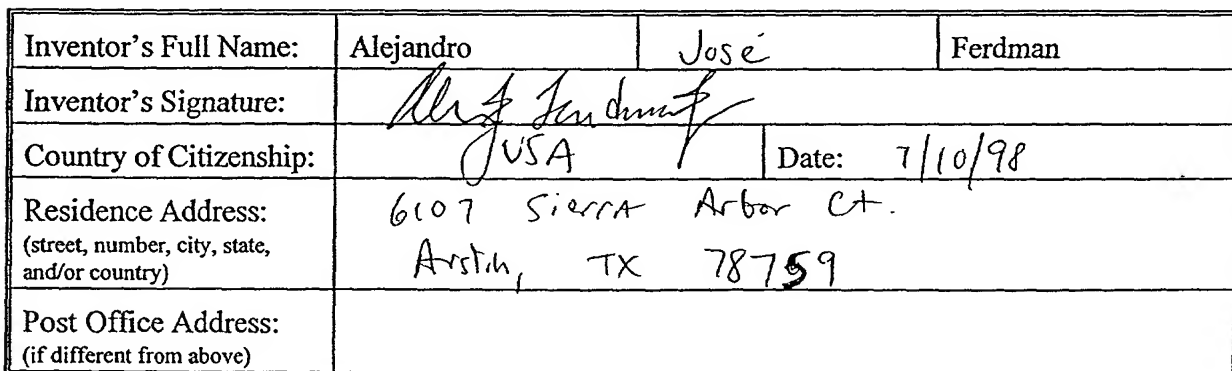 Inventor's Full Name: Alejandro José Ferdman
Inventor's Signature:
Country of Citizenship: USA Date: 7/10/98
Residence Address: 6107 Sierra Arbor Ct.
(street, number, city, state,
and/or country) Austin, TX 78759
Post Office Address:
(if different from above)